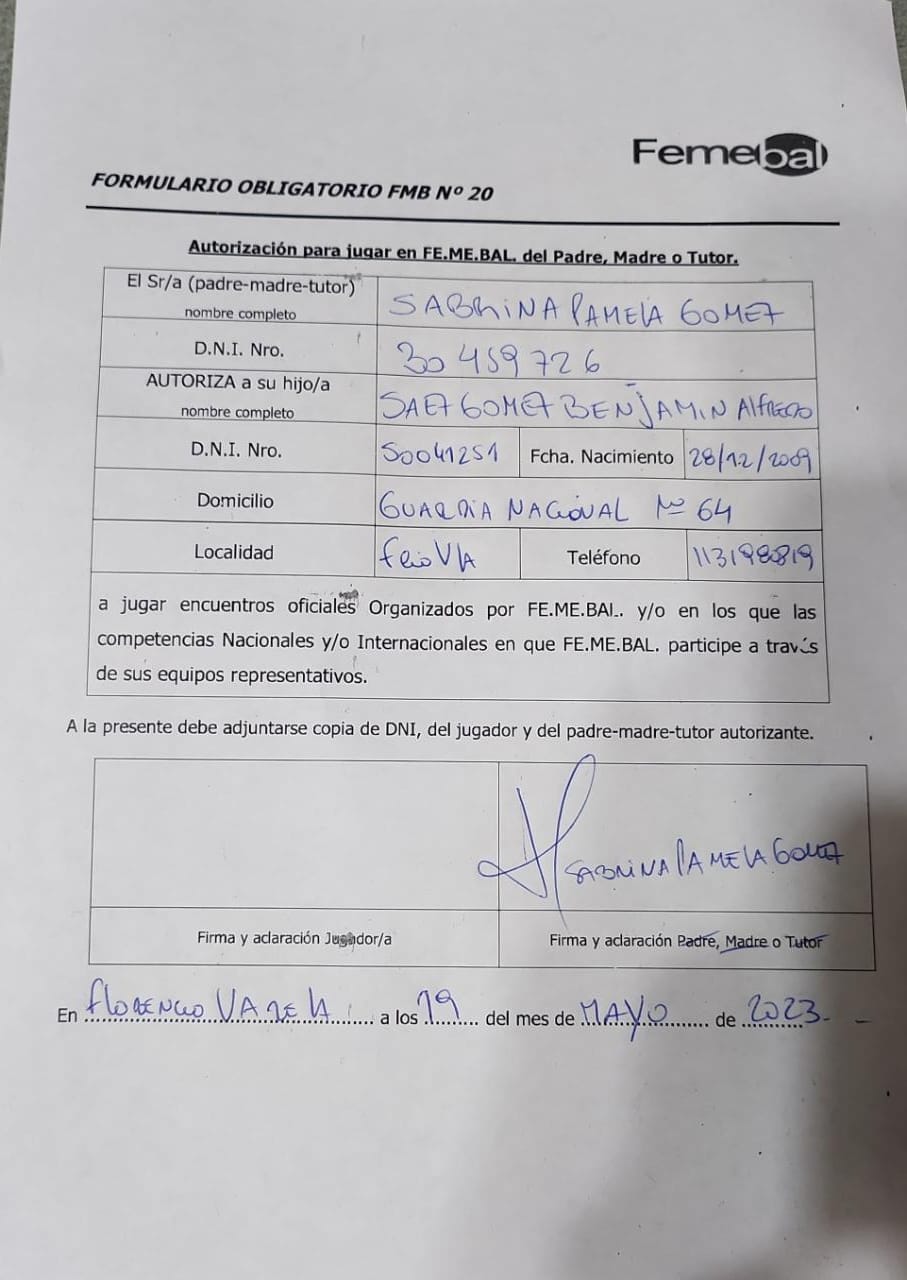 Femebal
FORMULARIO OBLIGATORIO FMB Nº 20
Autorización para jugar en FE.ME.BAL. del Padre, Madre o Tutor.
El Sr/a (padre-madre-tutor)
nombre completo
SABRINA PAMELA GOMEZ
D.N.I. Nro.
30 459 726
AUTORIZA a su hijo/a
nombre completo
SAEZ GOMEZ BENJAMIN Alfredo
D.N.I. Nro. 50041251 Fcha. Nacimiento 28/12/2009
Domicilio GUARDIA NACIONAL Nº 64
Localidad Fcio VLA Teléfono 113198819
a jugar encuentros oficiales Organizados por FE.ME.BAL. y/o en los que las
competencias Nacionales y/o Internacionales en que FE.ME.BAL. participe a través
de sus equipos representativos.
A la presente debe adjuntarse copia de DNI, del jugador y del padre-madre-tutor autorizante.
SABRINA PAMELA GOMEZ
Firma y aclaración Jugador/a Firma y aclaración Padre, Madre o Tutor
En FLORENCIO VARELA a los 19 del mes de MAYO de 2023